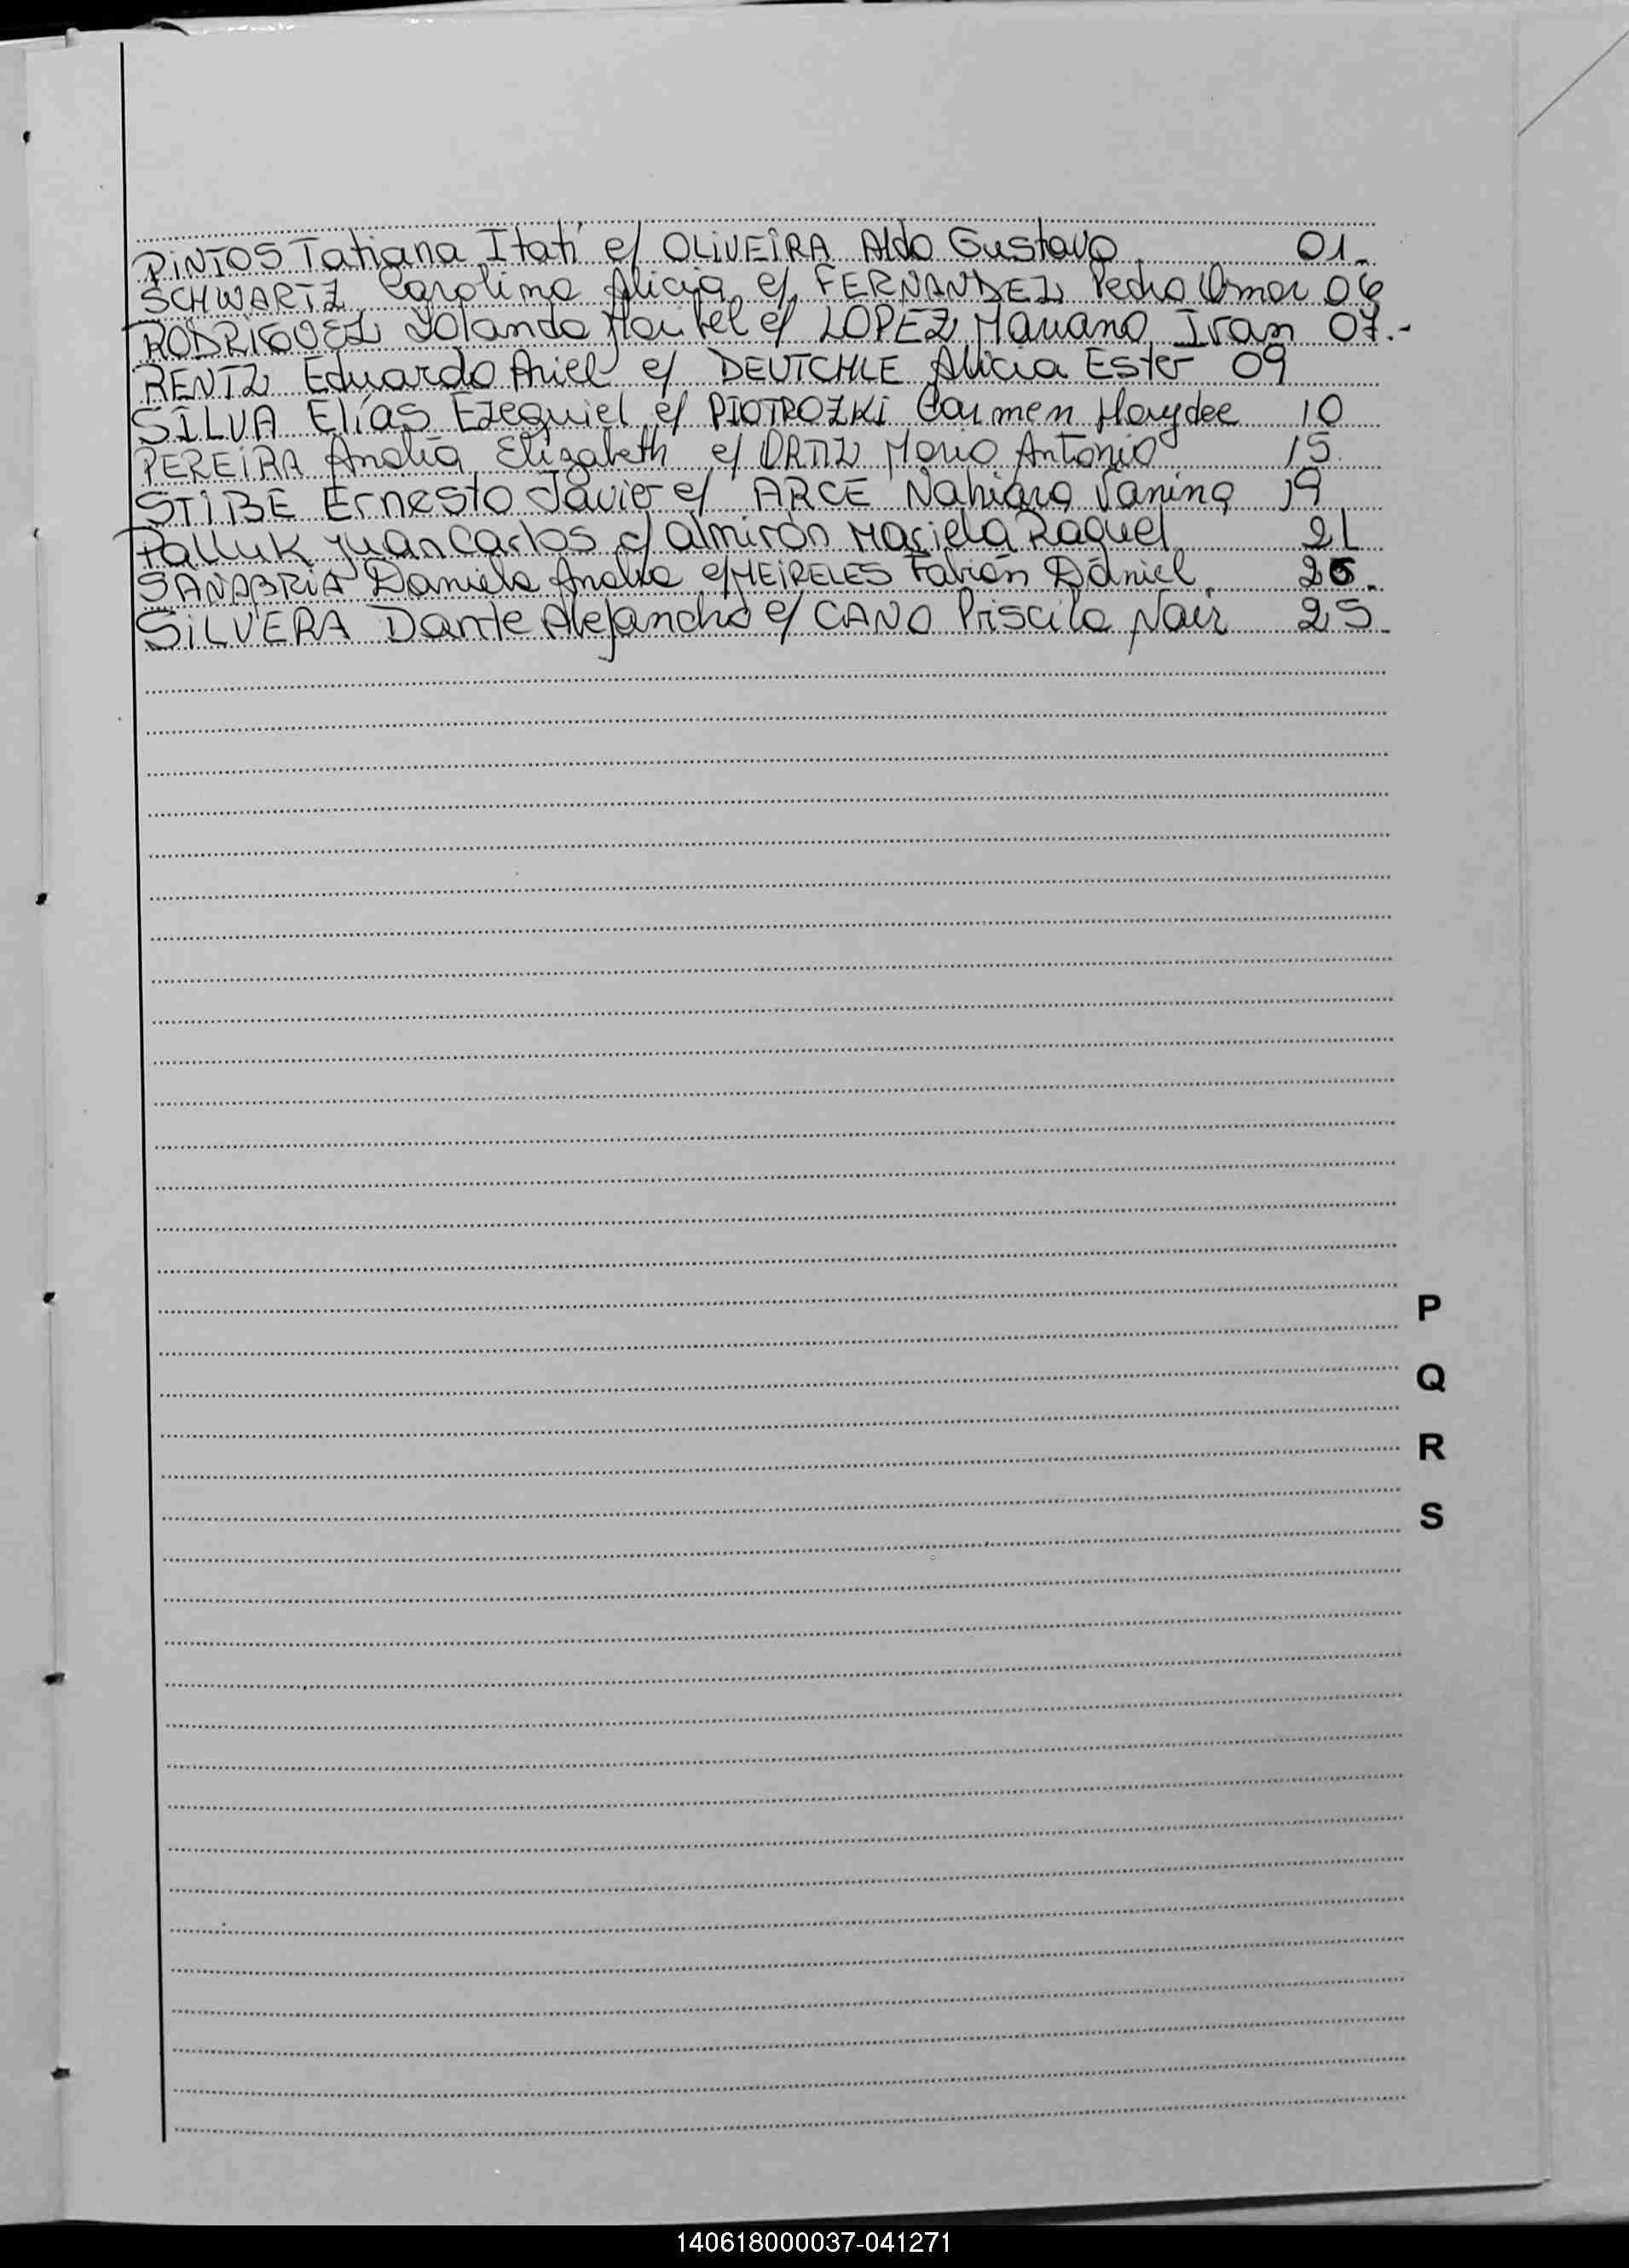 PINTOS Tatiana Itatí c/ OLIVEIRA Aldo Gustavo 01.
SCHWARTZ Carolina Alicia c/ FERNANDEZ Pedro Omar 06
RODRIGUEZ Yolanda Maribel c/ LOPEZ Mariano Ivan 07.-
RENTZ Eduardo Ariel c/ DEUTCHLE Alicia Ester 09
SILVA Elías Ezequiel c/ PIOTROZKI Carmen Haydee 10
PEREIRA Analía Elizabeth c/ ORTIZ Mario Antonio 15
STIBE Ernesto Javier c/ ARCE Nahiara Vanina 19
Palluk Juan Carlos c/ Almirón Mariela Raquel 21
SANABRIA Daniela Analia c/ MEIRELES Fabián Daniel
SILVERA Dante Alejandro c/ CANO Priscila Nair 25.
P
Q
R
S
140618000037-041271